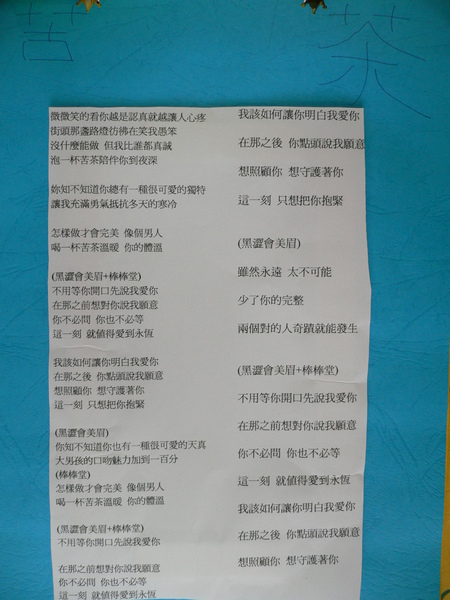 苦 茶
微微笑的看你越是認真就越讓人心疼
街頭那盞路燈彷彿在笑我愚笨
沒什麼能做 但我比誰都真誠
泡一杯苦茶陪伴你到夜深
妳知不知道你總有一種很可愛的獨特
讓我充滿勇氣抵抗冬天的寒冷
怎樣做才會完美 像個男人
喝一杯苦茶溫暖 你的體溫
(黑澀會美眉+棒棒堂)
不用等你開口先說我愛你
在那之前想對你說我願意
你不必問 你也不必等
這一刻 就值得愛到永恆
我該如何讓你明白我愛你
在那之後 你點頭說我願意
想照顧你 想守護著你
這一刻 只想把你抱緊
(黑澀會美眉)
你知不知道你也有一種很可愛的天真
大男孩的口吻魅力加到一百分
(棒棒堂)
怎樣做才會完美 像個男人
喝一杯苦茶溫暖 你的體溫
(黑澀會美眉+棒棒堂)
不用等你開口先說我愛你
在那之前想對你說我願意
你不必問 你也不必等
這一刻 就值得愛到永恆
我該如何讓你明白我愛你
在那之後 你點頭說我願意
想照顧你 想守護著你
這一刻 只想把你抱緊
(黑澀會美眉)
雖然永遠 太不可能
少了你的完整
兩個對的人奇蹟就能發生
(黑澀會美眉+棒棒堂)
不用等你開口先說我愛你
在那之前想對你說我願意
你不必問 你也不必等
這一刻 就值得愛到永恆
我該如何讓你明白我愛你
在那之後 你點頭說我願意
想照顧你 想守護著你